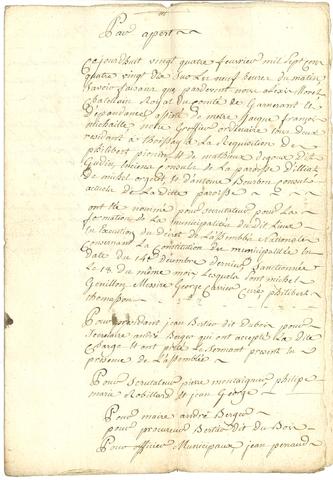 Par apert
Cejourdhuit vingt quatre feuvrier mil sept cent
quatre vingt dix sur les neuf heures du matin
savoir faisons que pardevant nous alexis Morel
Chatellain Royal du comté de Garnerant et
dependances assisté de maitre Jaque françois
michaille, notre Greffier ordinaire tous deux
residant à Thoissey à la Requisition de
philibert et de mathieux
consuls de la paroisse d'illiat
de michel et d'antoine Bourbon consuls
actuels de la ditte paroisse
ont été nommé pour scrutateur pour la
formation de la municipalité du dit lieu
en Execution du décret de l'assemblée Nationale
Concernant la Constitution des municipalités en
date du 14e décembre dernier, sanctionnée
le 18 du même mois lesquels sont michel
Genillon, Messire George curé, philibert
thomasson
Pour président jean Bertier dit Dubois pour
secretaire andré Berger qui ont accepté la dite
charge et ont prêté le serment present en
presence de l'assemblée
Pour scrutateur pierre montaigum philipe
marie Robillard et jean George
Pour maire andré Berger
pour procureur Bertier dit du Bois
Pour officier Municipaux, jean penaud